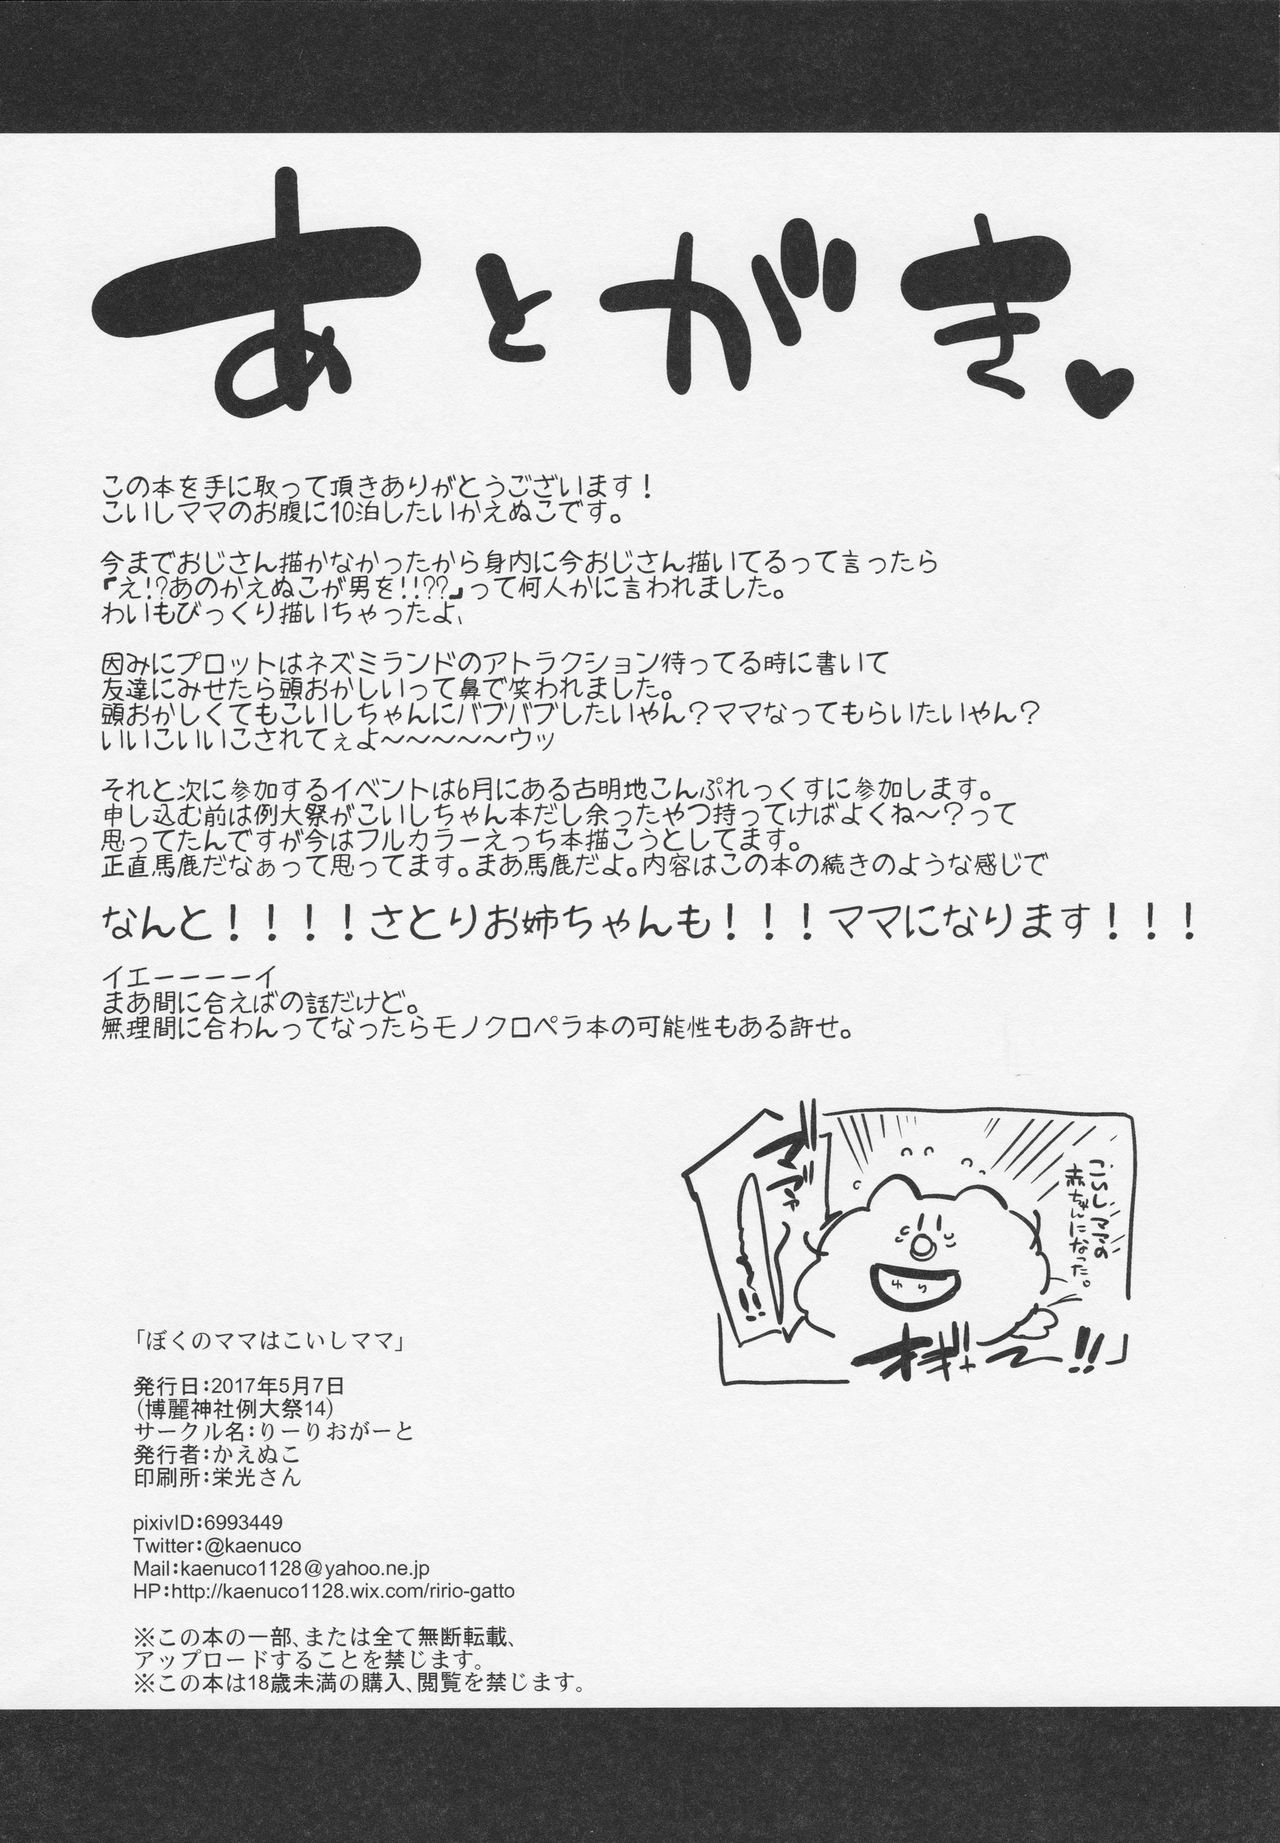 あとがき♥
この本を手に取って頂きありがとうございます！
こいしママのお腹に10泊したいかえぬこです。
今までおじさん描かなかったから身内に今おじさん描いてるって言ったら
『え!?あのかえぬこが男を!!??』って何人かに言われました。
わいもびっくり描いちゃったよ、
因みにプロットはネズミランドのアトラクション待ってる時に書いて
友達にみせたら頭おかしいって鼻で笑われました。
頭おかしくてもこいしちゃんにバブバブしたいやん？ママなってもらいたいやん？
いいこいいこされてぇよ～～～～～ウッ
それと次に参加するイベントは6月にある古明地こんぷれっくすに参加します。
申し込む前は例大祭がこいしちゃん本だし余ったやつ持ってけばよくね～？って
思ってたんですが今はフルカラーえっち本描こうとしてます。
正直馬鹿だなぁって思ってます。まあ馬鹿だよ。内容はこの本の続きのような感じで
なんと！！！！さとりお姉ちゃんも！！！ママになります！！！
イエーーーーイ
まあ間に合えばの話だけど。
無理間に合わんってなったらモノクロペラ本の可能性もある許せ。
こいしママの
赤ちゃんになった。
マ゛マ゛ァ
!!
ゆり
オギャー!!」
「ぼくのママはこいしママ」
発行日：2017年5月7日
（博麗神社例大祭14）
サークル名：りーりおがーと
発行者：かえぬこ
印刷所：栄光さん
pixivID：6993449
Twitter：@kaenuco
Mail：kaenuco1128@yahoo.ne.jp
HP：http://kaenuco1128.wix.com/ririo-gatto
※この本の一部、または全て無断転載、
アップロードすることを禁じます。
※この本は18歳未満の購入、閲覧を禁じます。